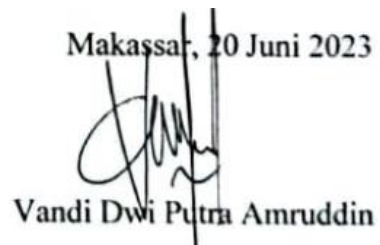 Makassar, 20 Juni 2023
Vandi Dwi Putra Amruddin